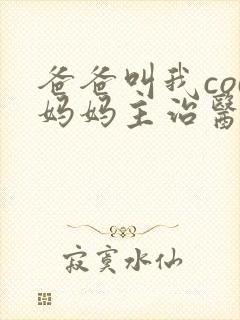 爸爸叫我co
妈妈主治醫
寂寞水仙